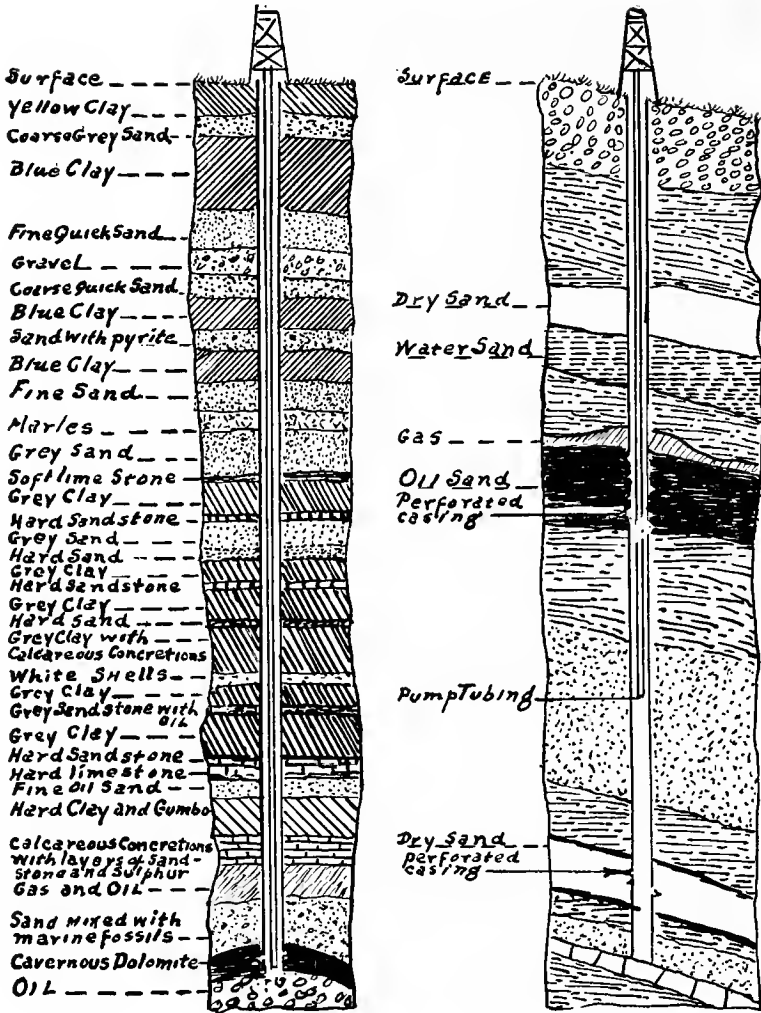 Surface
Yellow Clay
Coarse Grey Sand
Blue Clay
Fine Quick Sand
Gravel
Coarse quick Sand
Blue Clay
Sand with pyrite
Blue Clay
Fine Sand
Marles
Grey Sand
Soft lime Stone
Grey Clay
Hard Sandstone
Grey Sand
Hard Sand
Grey Clay
Hard Sandstone
Grey Clay
Hard Sand
Grey Clay with
Calcareous Concretions
White Shells
Grey Clay
Grey Sandstone with
OIL
Grey Clay
Hard Sandstone
Hard limestone
Fine Oil Sand
Hard Clay and Gumbo
Calcareous Concretions
with layers of Sand-
Stone and Sulphur
Gas and OIL
Sand Mixed with
marine fossils
Cavernous Dolomite
OIL
Surface
Dry Sand
Water Sand
Gas
Oil Sand
Perforated
casing
Pump Tubing
Dry Sand
perforated
casing